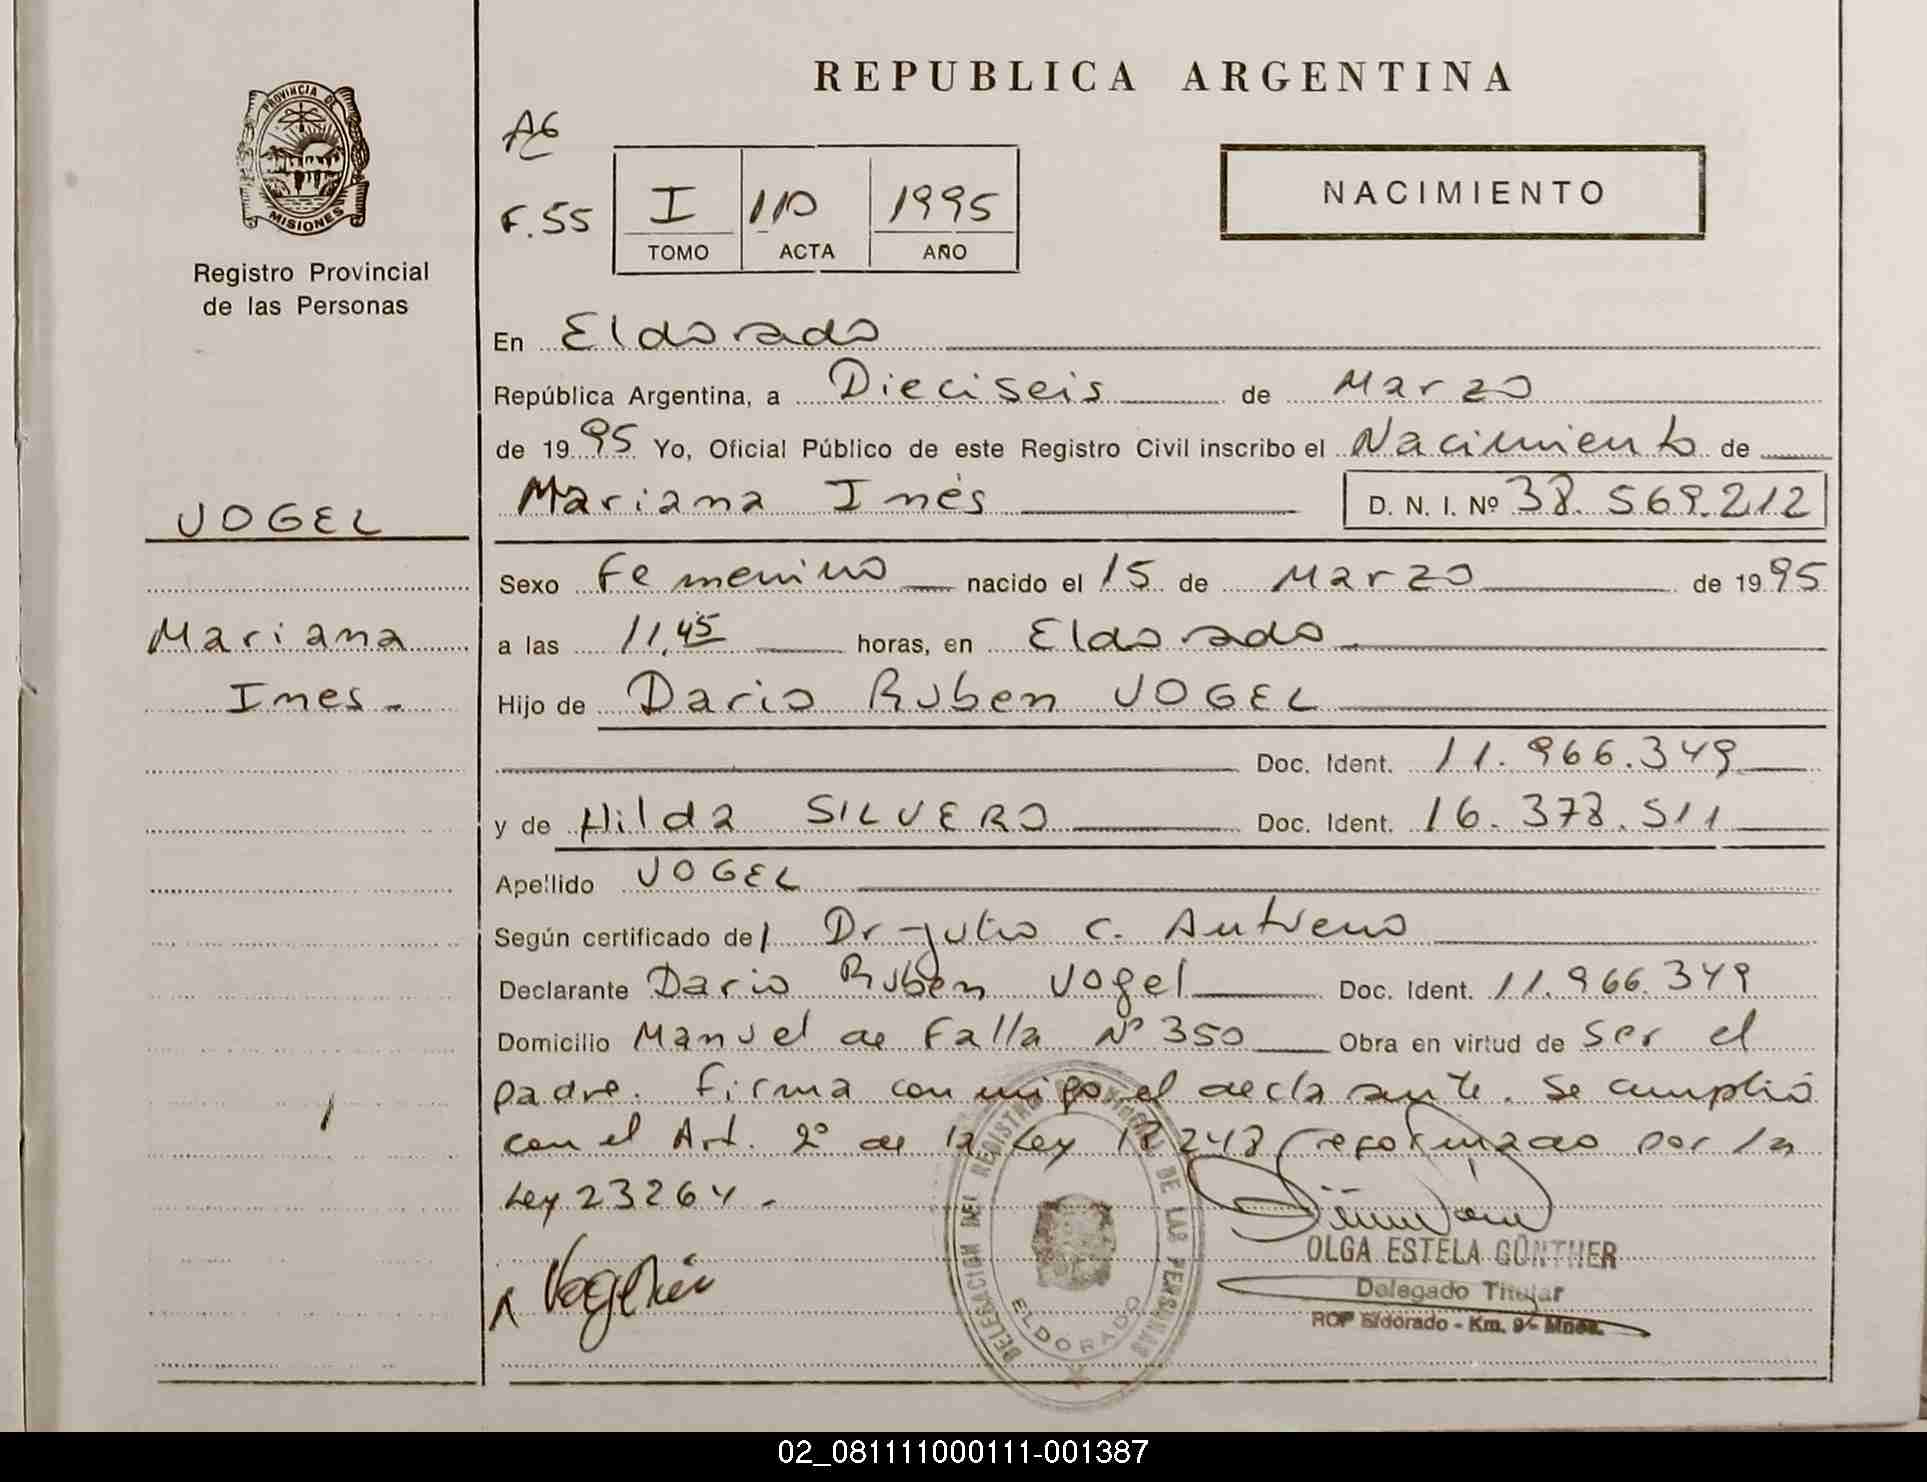 REPUBLICA ARGENTINA
PROVINCIA DE MISIONES
Registro Provincial
de las Personas
A6
F. 55
I 110 1995
TOMO ACTA AÑO
NACIMIENTO
En Eldorado
República Argentina, a Dieciseis de Marzo
de 1995 Yo, Oficial Público de este Registro Civil inscribo el Nacimiento de
Mariana Inés D. N. I. Nº 38.569.212
VOGEL
Mariana
Ines.
Sexo Femenino nacido el 15 de Marzo de 1995
a las 11,45 horas, en Eldorado
Hijo de Dario Ruben VOGEL
Doc. Ident. 11.966.349
y de Hilda SILVERO Doc. Ident. 16.378.511
Apellido VOGEL
Según certificado de Dr Julio C.
Declarante Dario Ruben Vogel Doc. Ident. 11.966.349
Domicilio Manuel de Falla Nº 350 Obra en virtud de ser el
padre. Firma conmigo el declarante. Se cumplió
con el Art. 2º de la Ley 18248 reformado por la
Ley 23264.
DELEGACION DEL REGISTRO PROVINCIAL DE LAS PERSONAS
ELDORADO
OLGA ESTELA GÜNTHER
Delegado Titular
RCP Eldorado - Km. 9 - Mnes.
02_081111000111-001387